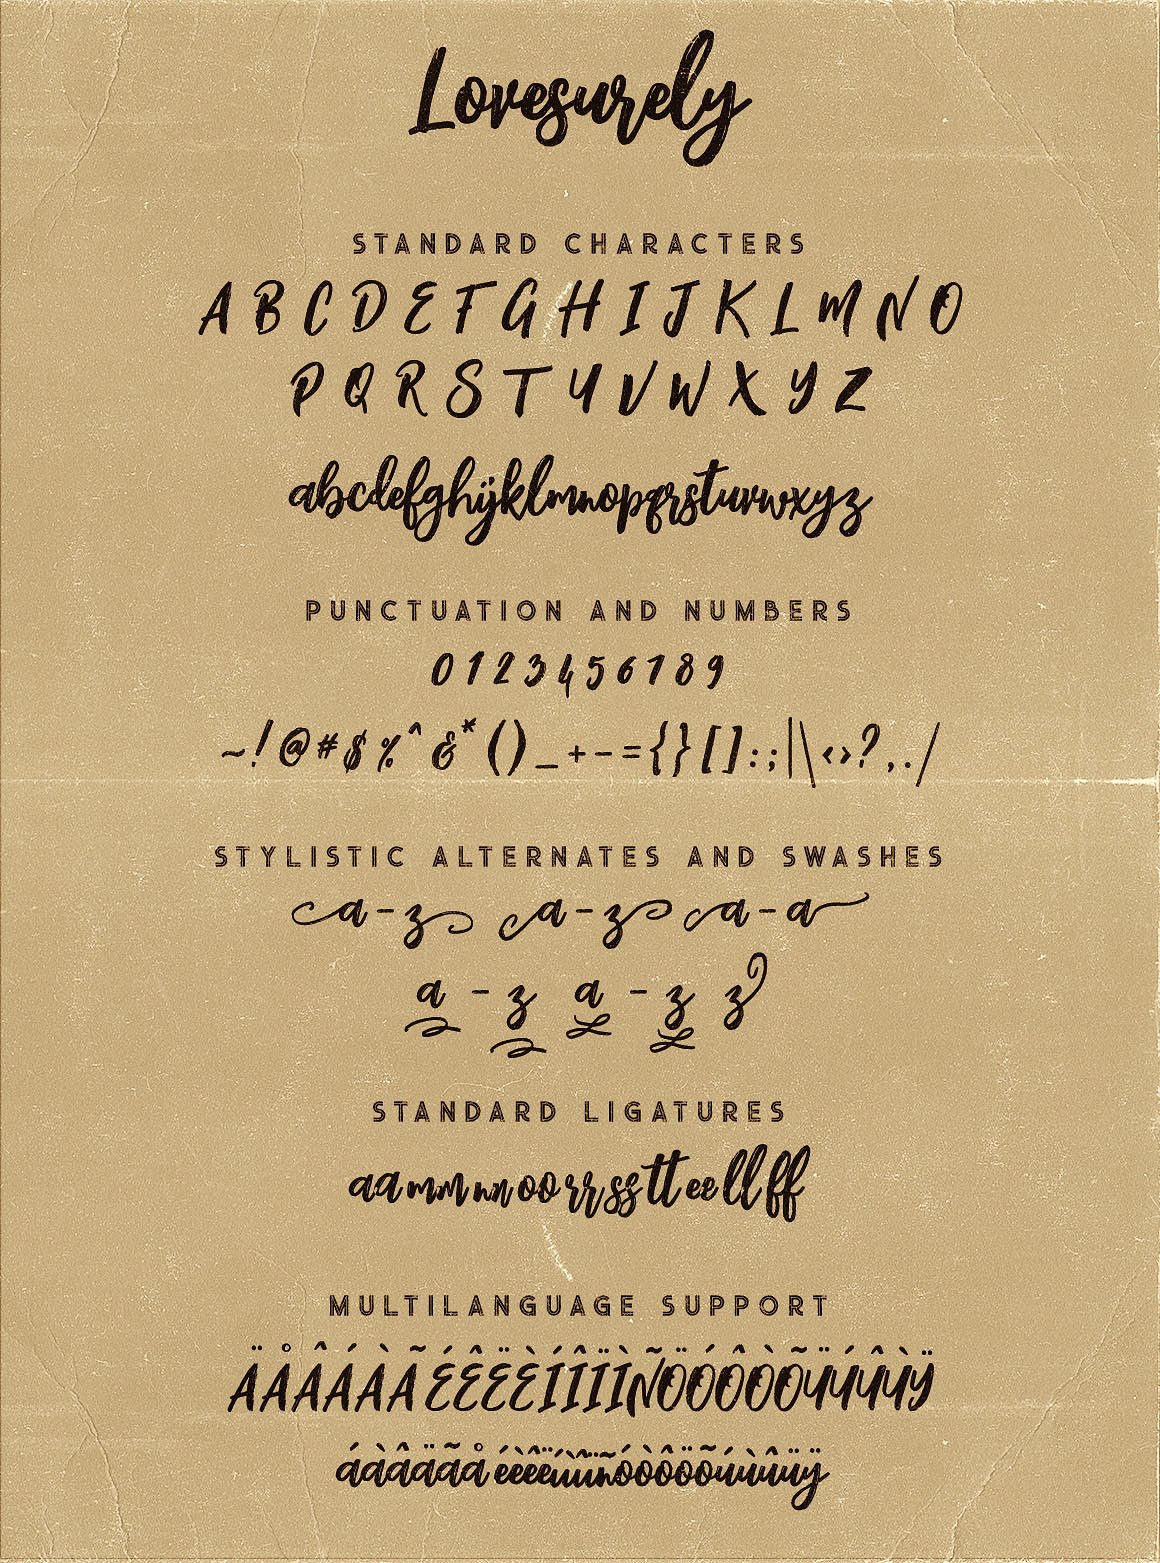 Lovesurely
STANDARD CHARACTERS
A B C D E F G H I J K L M N O
P Q R S T U V W X Y Z
abcdefghijklmnopqrstuvwxyz
PUNCTUATION AND NUMBERS
0 1 2 3 4 5 6 7 8 9
~ ! @ # $ % ^ & * ( ) _ + - = { } [ ] : ; | \ < > ? , . /
STYLISTIC ALTERNATES AND SWASHES
a - z a - z a - a
a - z a - z z
STANDARD LIGATURES
aa mm nn oo rr ss tt ee ll ff
MULTILANGUAGE SUPPORT
ÄÅÂÁÀÃÉÊËÈÍÎÏÌÑÓÔÒÕÖÚÛÙŸ
áàâäãåéèêëíìîïñóòôöõúùûüÿ